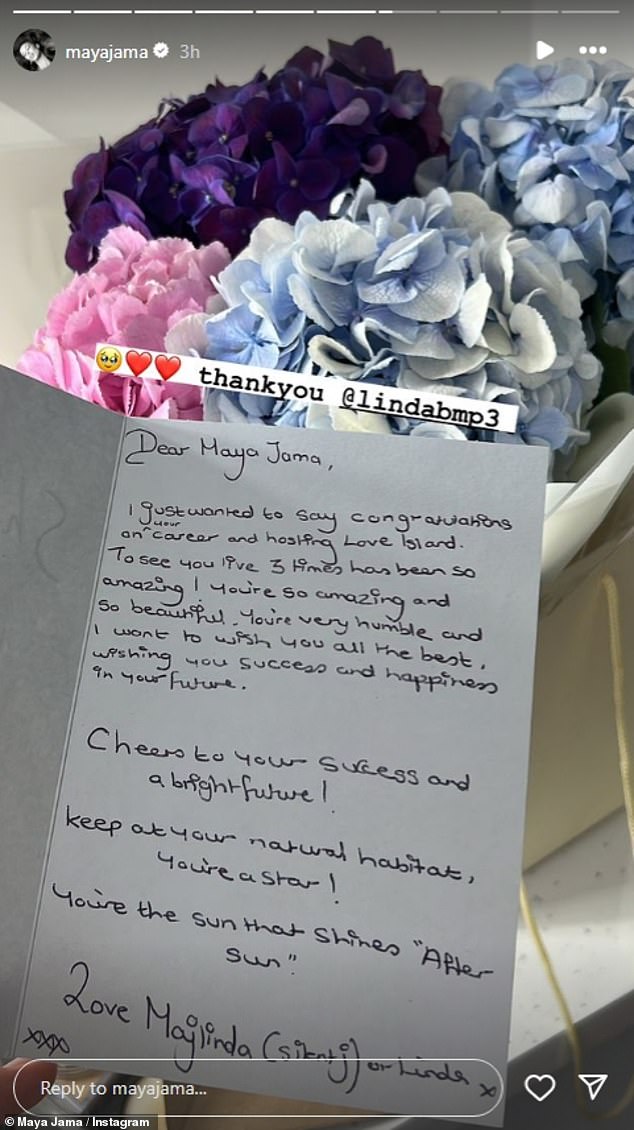 mayajama 3h
thankyou @lindabmp3
Dear Maya Jama,
I just wanted to say congratulations
your
on ^ career and hosting Love Island.
To see you live 3 times has been so
amazing! You're so amazing and
so beautiful. You're very humble and
I want to wish you all the best,
wishing you success and happiness
in your future.
Cheers to your success and
a bright future!
Keep at your natural habitat,
You're a star!
You're the sun that shines "After
Sun".
Love Majlinda (silent j) or Linda x
xxxx
Reply to mayajama...
© Maya Jama / Instagram